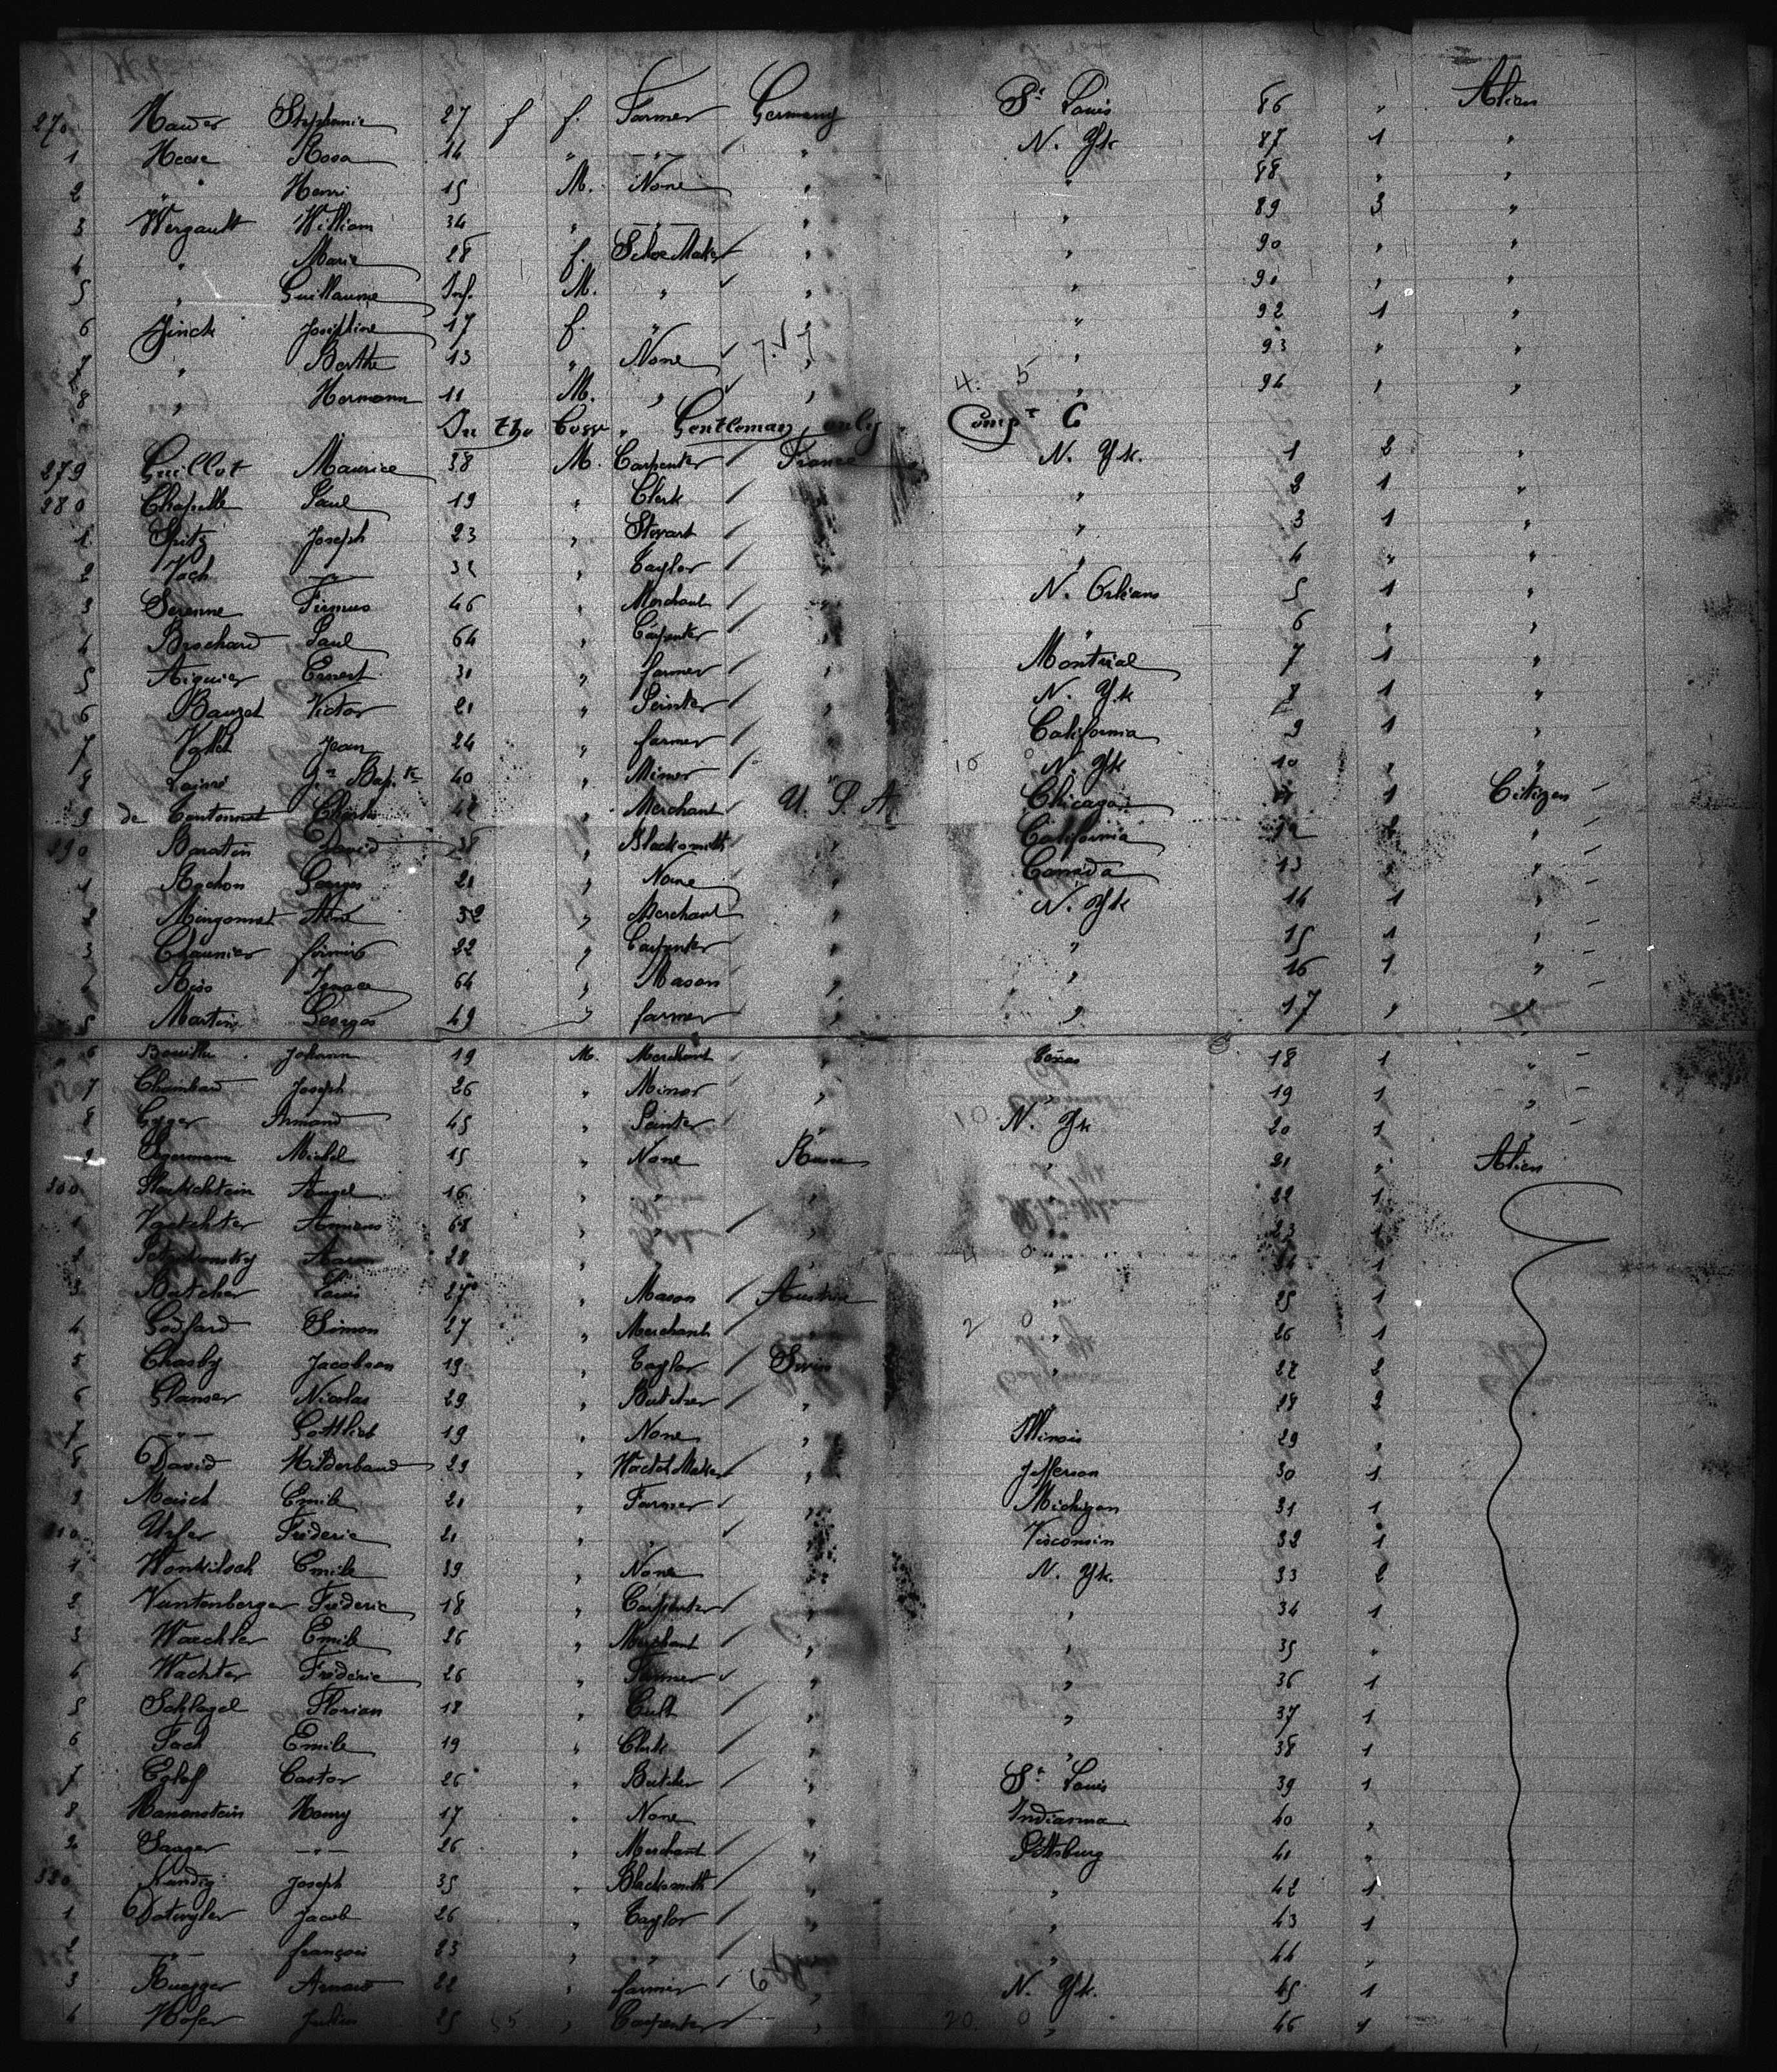 270 Stephanie 27 f f. Farmer Germany St Louis 86 " Alien
1 Heese Rosa 14 " —"— " N. Yk 87 1 "
2 " Henri 15 M. None " " 88 " "
3 Wergault William 34 " —"— " " 89 3 "
4 " Marie 28 f. Schoe Maker " " 90 " "
5 " Guillaume Inf. M. " " " 91 " "
6 Zinck Josephine 17 f. " " " 92 1 "
7 " Berthe 13 " None " " 93 " "
8 " Hermann 11 M. " " 4. 5 " 94 " "
In the Gentleman only Compt C
279 Guillot Maurice 38 M. Carpenter France N. Yk. 1 2 "
280 Chapelle Paul 19 " Clerk " " 2 1 "
1 Spitz Joseph 23 " Stewart " " 3 1 "
2 Koch —"— 32 " Taylor " " 4 " "
3 Serenne Firmus 46 " Merchant " N. Orleans 5 1 "
4 Brochard Paul 64 " Carpenter " " 6 " "
5 Aiguier Ernest 31 " farmer " Montreal 7 1 "
6 Bauzet Victor 21 " Peinter " N. Yk 8 1 "
7 Vallet Jean 24 " farmer " California 9 1 "
8 Jn Bapte 40 " Minor " 10 0 N. Yk 10 " "
9 de Cantonnet Charles 42 " Merchant U. S. A. Chicago 11 1 Citizen
290 Baratin David 38 " Blacksmith " California 12 "
1 Rochon Georges 21 " None " Canada 13 " "
2 Mingonnat 32 " Merchant " N. Yk 14 1 "
3 Chaunier firmin 22 " Carpenter " " 15 1 "
4 Ignace 64 " Mason " " 16 1 "
5 Martin Georges 49 " farmer " " 17 " "
6 Johann 19 M. Merchant " Texas 18 1 "
7 Chambard Joseph 26 " Minor " " 19 1 "
8 Armand 45 " Peinter " 10 N. Yk 20 1 "
9 Michel 15 " None Russia " 21 " Alien
300 Angel 16 " " " " 22 1
1 68 " " " " 23 1
2 28 " " " 4 0 " 24 1
3 Butcher Louis 27 " Mason Austria " 25 1
4 Godfard Simon 27 " Merchant " 2 0 " 26 1
5 Chasby Jacobson 19 " Taylor Swiss " 27 2
6 Glanser Nicolas 29 " Butcher " " 28 2
7 —"— Gottlieb 19 " None " Illinois 29 "
8 David Hilderband 29 " Watch Maker " Jefferson 30 1
9 Emile 21 " Farmer " Michigan 31 1
310 Urfer Frederic 21 " " " Visconsin 32 1
1 Emile 39 " None " N. Yk. 33 2
2 Vuntenberger Frederic 18 " Carpenter " " 34 1
3 Waechter Emile 26 " Merchant " " 35 "
4 Wachter Frederic 26 " Farmer " " 36 1
5 Schlagel Florian 18 " Cult " " 37 1
6 Emile 19 " Clerk " " 38 1
7 Castor 26 " Butcher " St Louis 39 1
8 Hanenstein Henry 17 " None " Indianna 40 "
9 —"— 26 " Merchant " Pittsburg 41 "
320 Joseph 35 " Blacksmith " " 42 1
1 Datwyler Jacob 26 " Taylor " " 43 1
2 —"— françois 23 " " " " 44 "
3 Ruegger Arnaud 22 " farmer " N. Yk. 45 1
4 Hofer Julius 25 " Carpenter " 20. 0 " 46 1